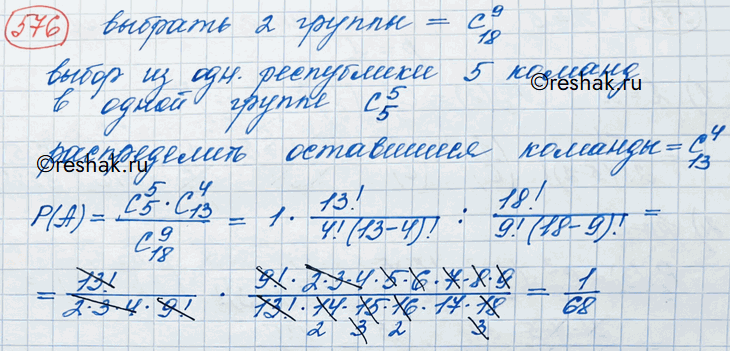 576 выбрать 2 группы = C₁₈⁹
выбор из одн. республики 5 команд
в одной группе C₅⁵
©reshak.ru
распределить оставшиеся команды = C₁₃⁴
©reshak.ru
P(A) = (C₅⁵ · C₁₃⁴) / C₁₈⁹ = 1 · 13! / (4! (13-4)!) : 18! / (9! (18-9)!) =
= 13! / (2·3·4·9!) · (9! · 2·3·4·5·6·7·8·9) / (13! · 14·15·16·17·18) = 1/68
2 3 2 3